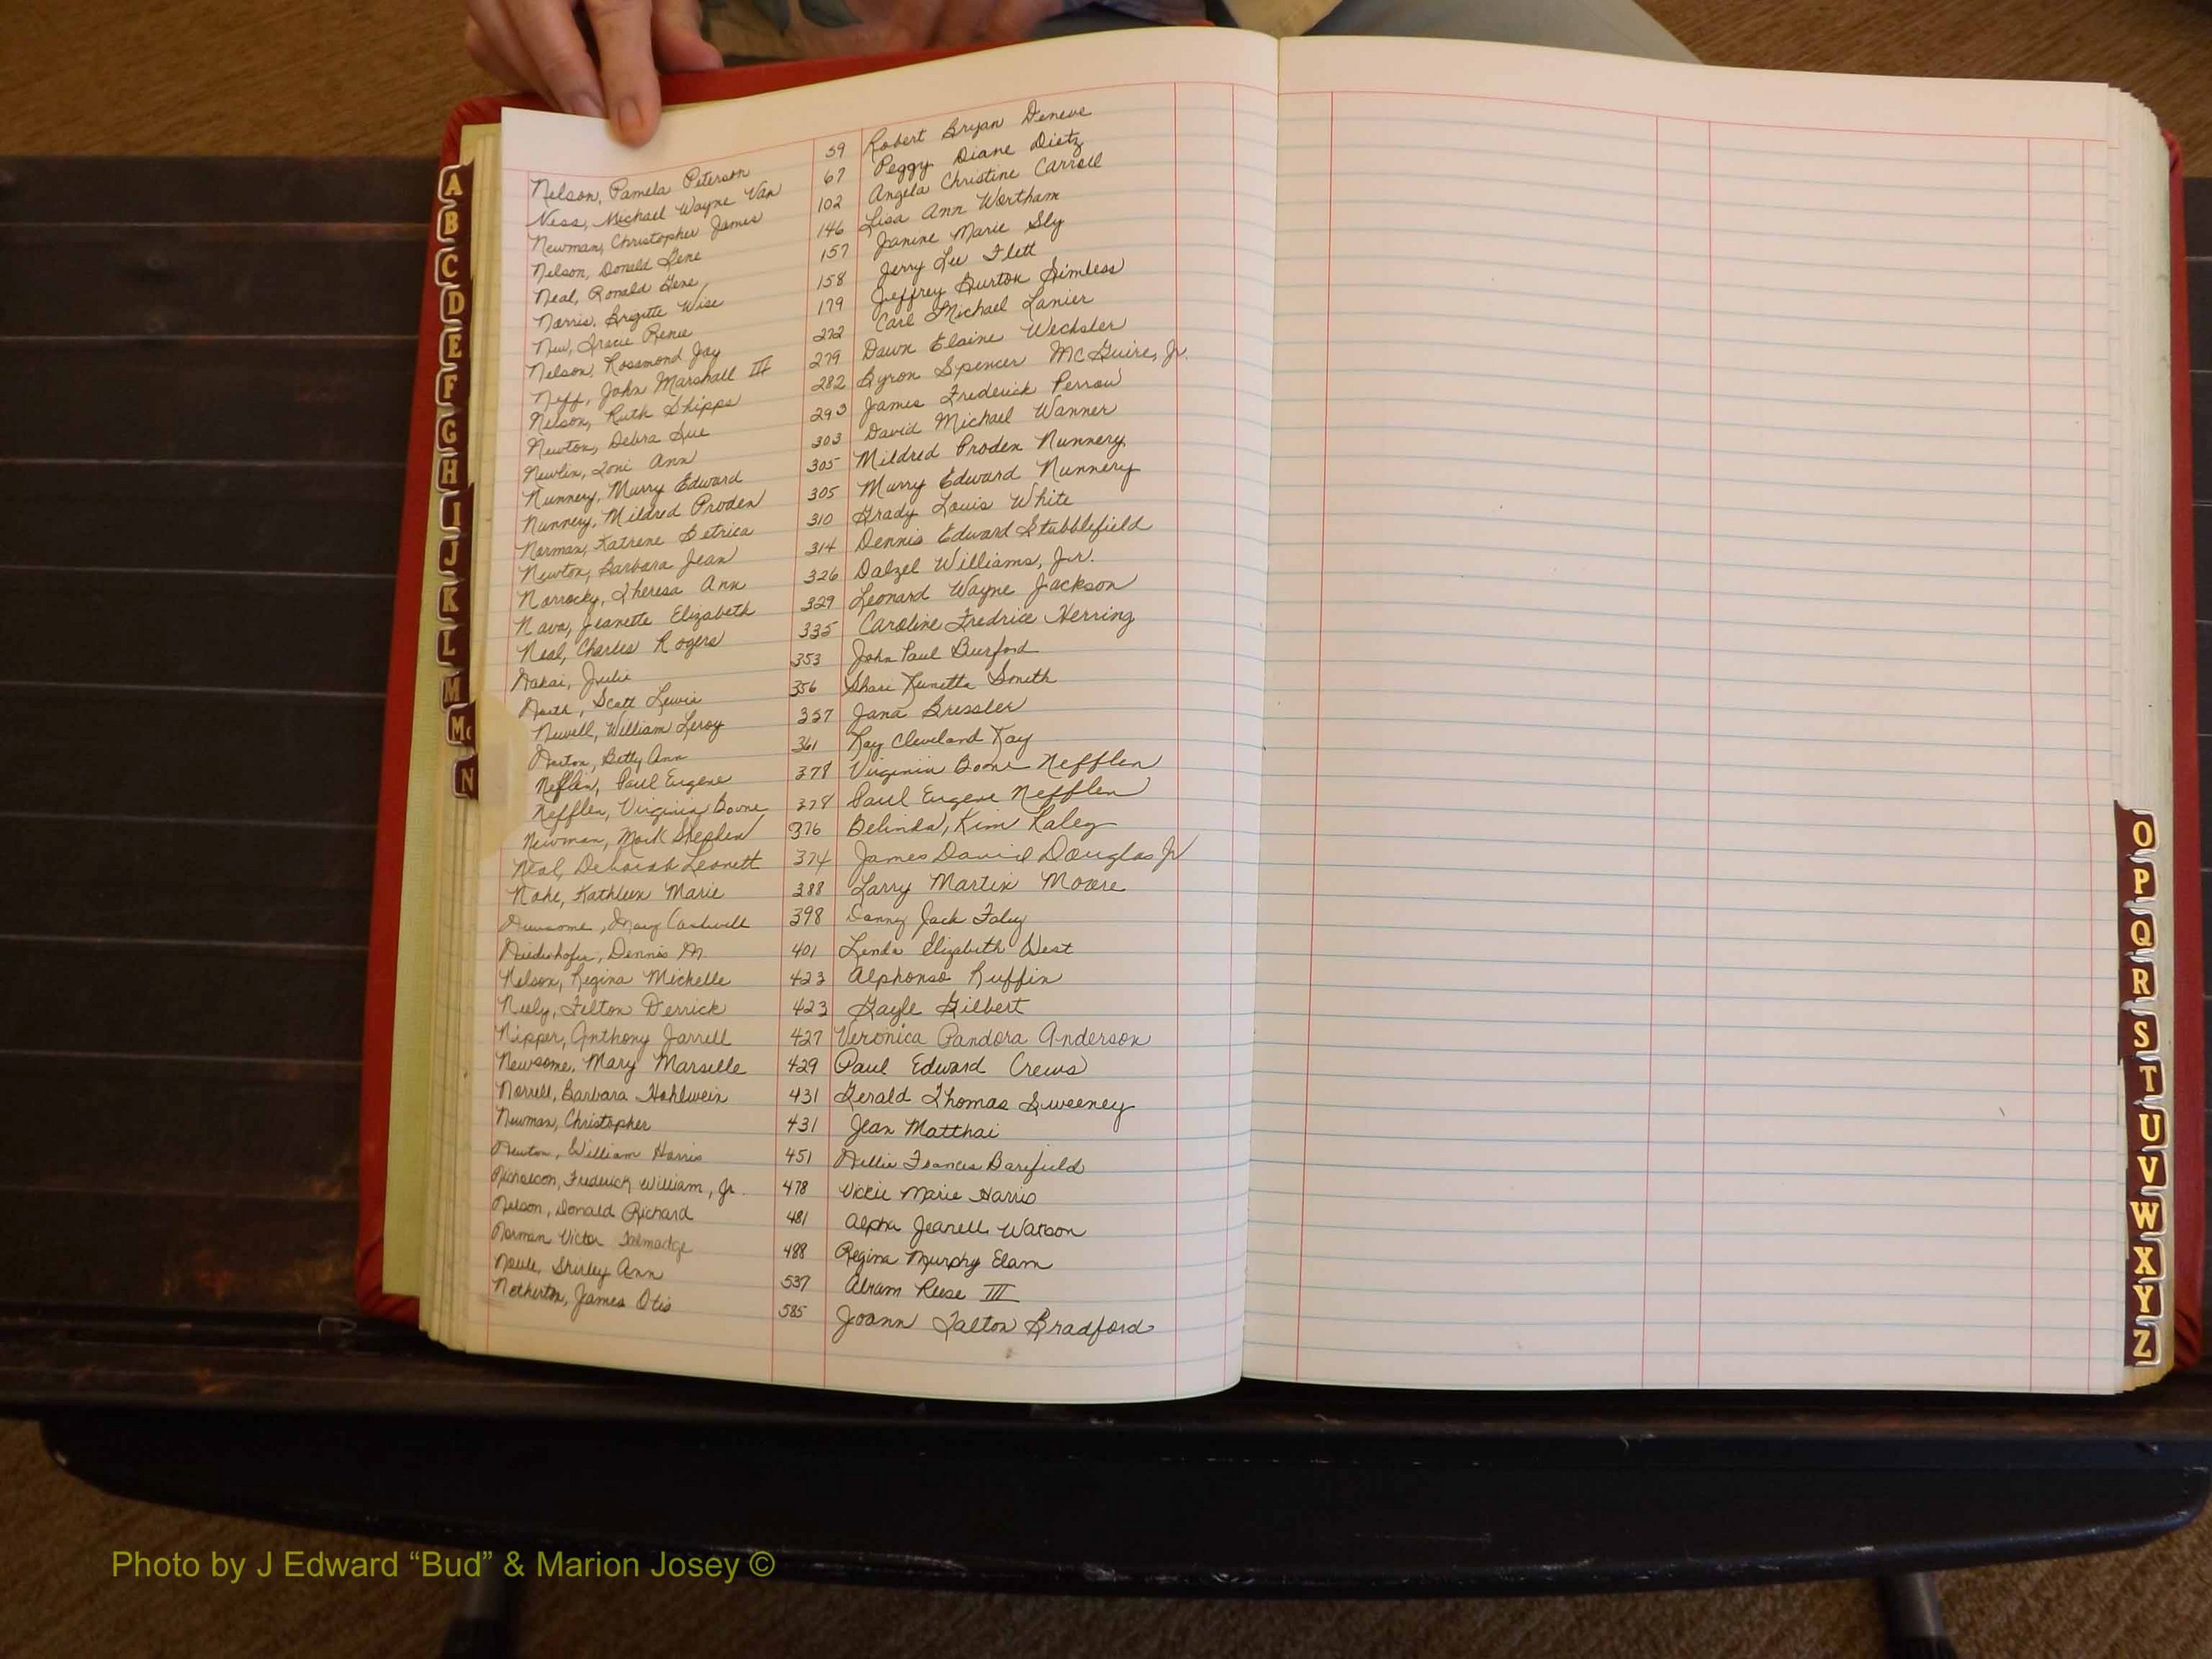 Nelson, Pamela Peterson 59 Robert Bryan Deneve
Ness, Michael Wayne Van 67 Peggy Diane Dietz
Newman, Christopher James 102 Angela Christine Carroll
Nelson, Donald Gene 146 Lisa Ann Wortham
Neal, Ronald Gene 157 Janine Marie Sly
Norris, Brigitte Wise 158 Jerry Lee Flett
New, Gracie Renee 179 Jeffrey Burton
Nelson, Rosamond Jay 272 Carl Michael Lanier
Neff, John Marshall III 279 Dawn Elaine Wechsler
Nelson, Ruth Shipps 282 Byron Spencer McGuire, Jr.
Newton, Debra Sue 293 James Frederick Perrow
Newlin, Toni Ann 303 David Michael Wanner
Nunnery, Murry Edward 305 Mildred Proden Nunnery
Nunnery, Mildred Proden 305 Murry Edward Nunnery
Norman, Katrene Betrica 310 Grady Louis White
Newton, Barbara Jean 314 Dennis Edward Stubblefield
Narrocky, Theresa Ann 326 Dalzel Williams, Jr.
Nava, Jeanette Elizabeth 329 Leonard Wayne Jackson
Neal, Charles Rogers 335 Caroline Fredrice Herring
Nakai, Julie 353 John Paul Burford
North, Scott Lewis 356 Shari Smith
Newell, William Leroy 357 Jana Bressler
Norton, Betty Ann 361 Ray Cleveland Kay
Nefflen, Paul Eugene 378 Virginia Boone Nefflen
Nefflen, Virginia Boone 378 Paul Eugene Nefflen
Newman, Mark Stephen 376 Belinda, Kim Raley
Neal, Deborah Leonett 374 James David Douglas Jr
Nohe, Kathleen Marie 388 Larry Martin Moore
Newsome, Mary Cardwell 398 Danny Jack Foley
Niederhofer, Dennis M. 401 Linda Elizabeth West
Nelson, Regina Michelle 423 Alphonso Ruffin
Neely, Felton Derrick 423 Gayle Gilbert
Nipper, Anthony Jarrell 427 Veronica Pandora Anderson
Newsome, Mary Marselle 429 Paul Edward Crews
Norrell, Barbara Hohlwein 431 Gerald Thomas Sweeney
Newman, Christopher 431 Jean Matthai
Newton, William Harris 451 Nellie Frances Barefield
Nicholson, Frederick William, Jr. 478 Vickie Marie Harris
Nelson, Donald Richard 481 Alpha Jeanell Watson
Norman Victor Talmadge 488 Regina Murphy Elam
Shirley Ann 537 Abram Reese III
Netherton, James Otis 585 Joann Talton Bradford
A
B
C
D
E
F
G
H
I
J
K
L
M
Mc
N
O
P
Q
R
S
T
U
V
W
X
Y
Z
Photo by J Edward “Bud” & Marion Josey ©